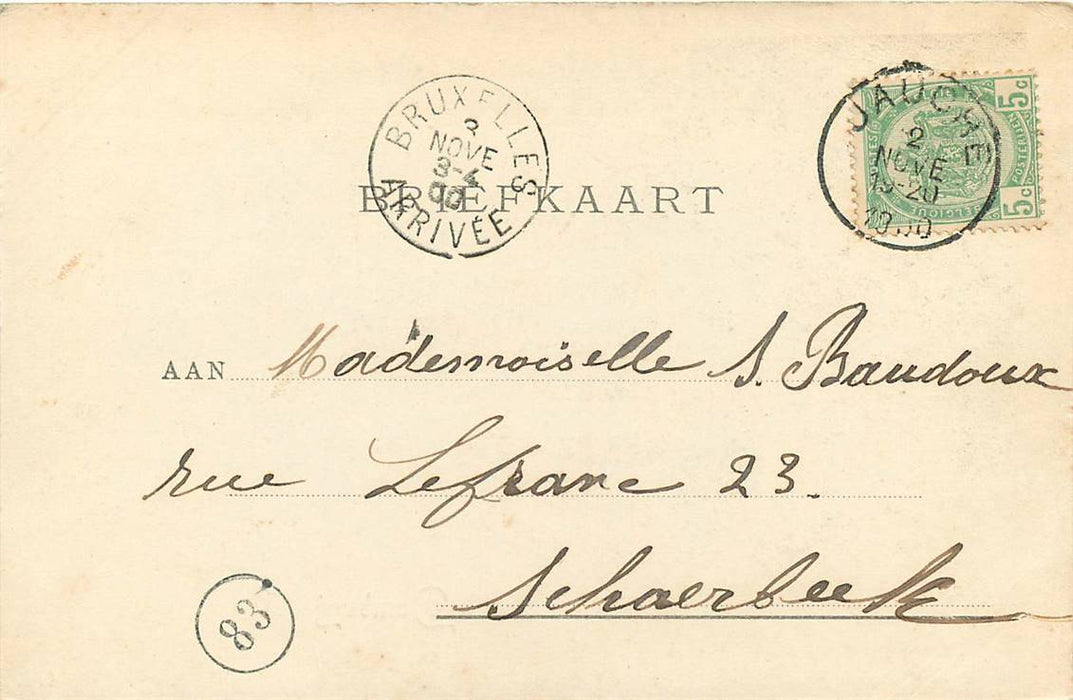 BRUXELLES
3
NOVE
3-4
00
ARRIVÉE
JAUCHE
2
NOVE
19-20
1900
5c
5c
BELGIQUE
BRIEFKAART
AAN Mademoiselle S. Baudoux
rue Lefranc 23.
Schaerbeek
83